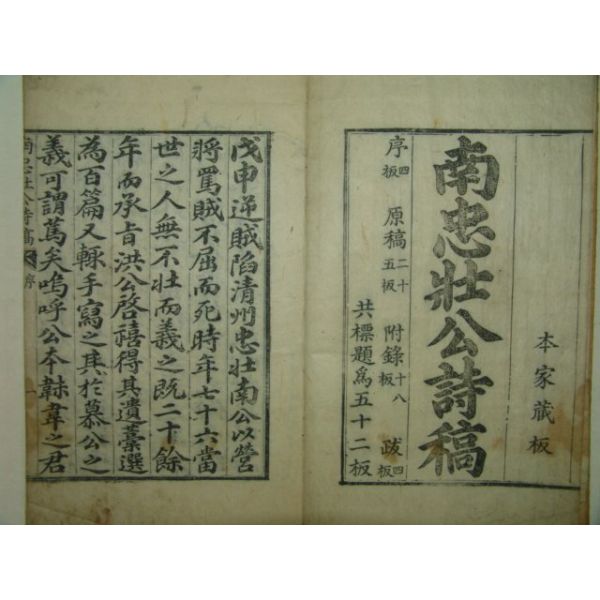 本家藏板
南忠壯公詩稿
序四板 原稿二十五板 附錄十八板 跋四板
共標題爲五十二板
戊申逆賊陷清州忠壯南公以營
將罵賊不屈而死時年七十六當
世之人無不壯而義之旣二十餘
年而承旨洪公啓禧得其遺藁選
為百篇又輒手寫之其於慕公之
義可謂篤矣嗚呼公本韎韋之君
南忠壯公詩稿 序